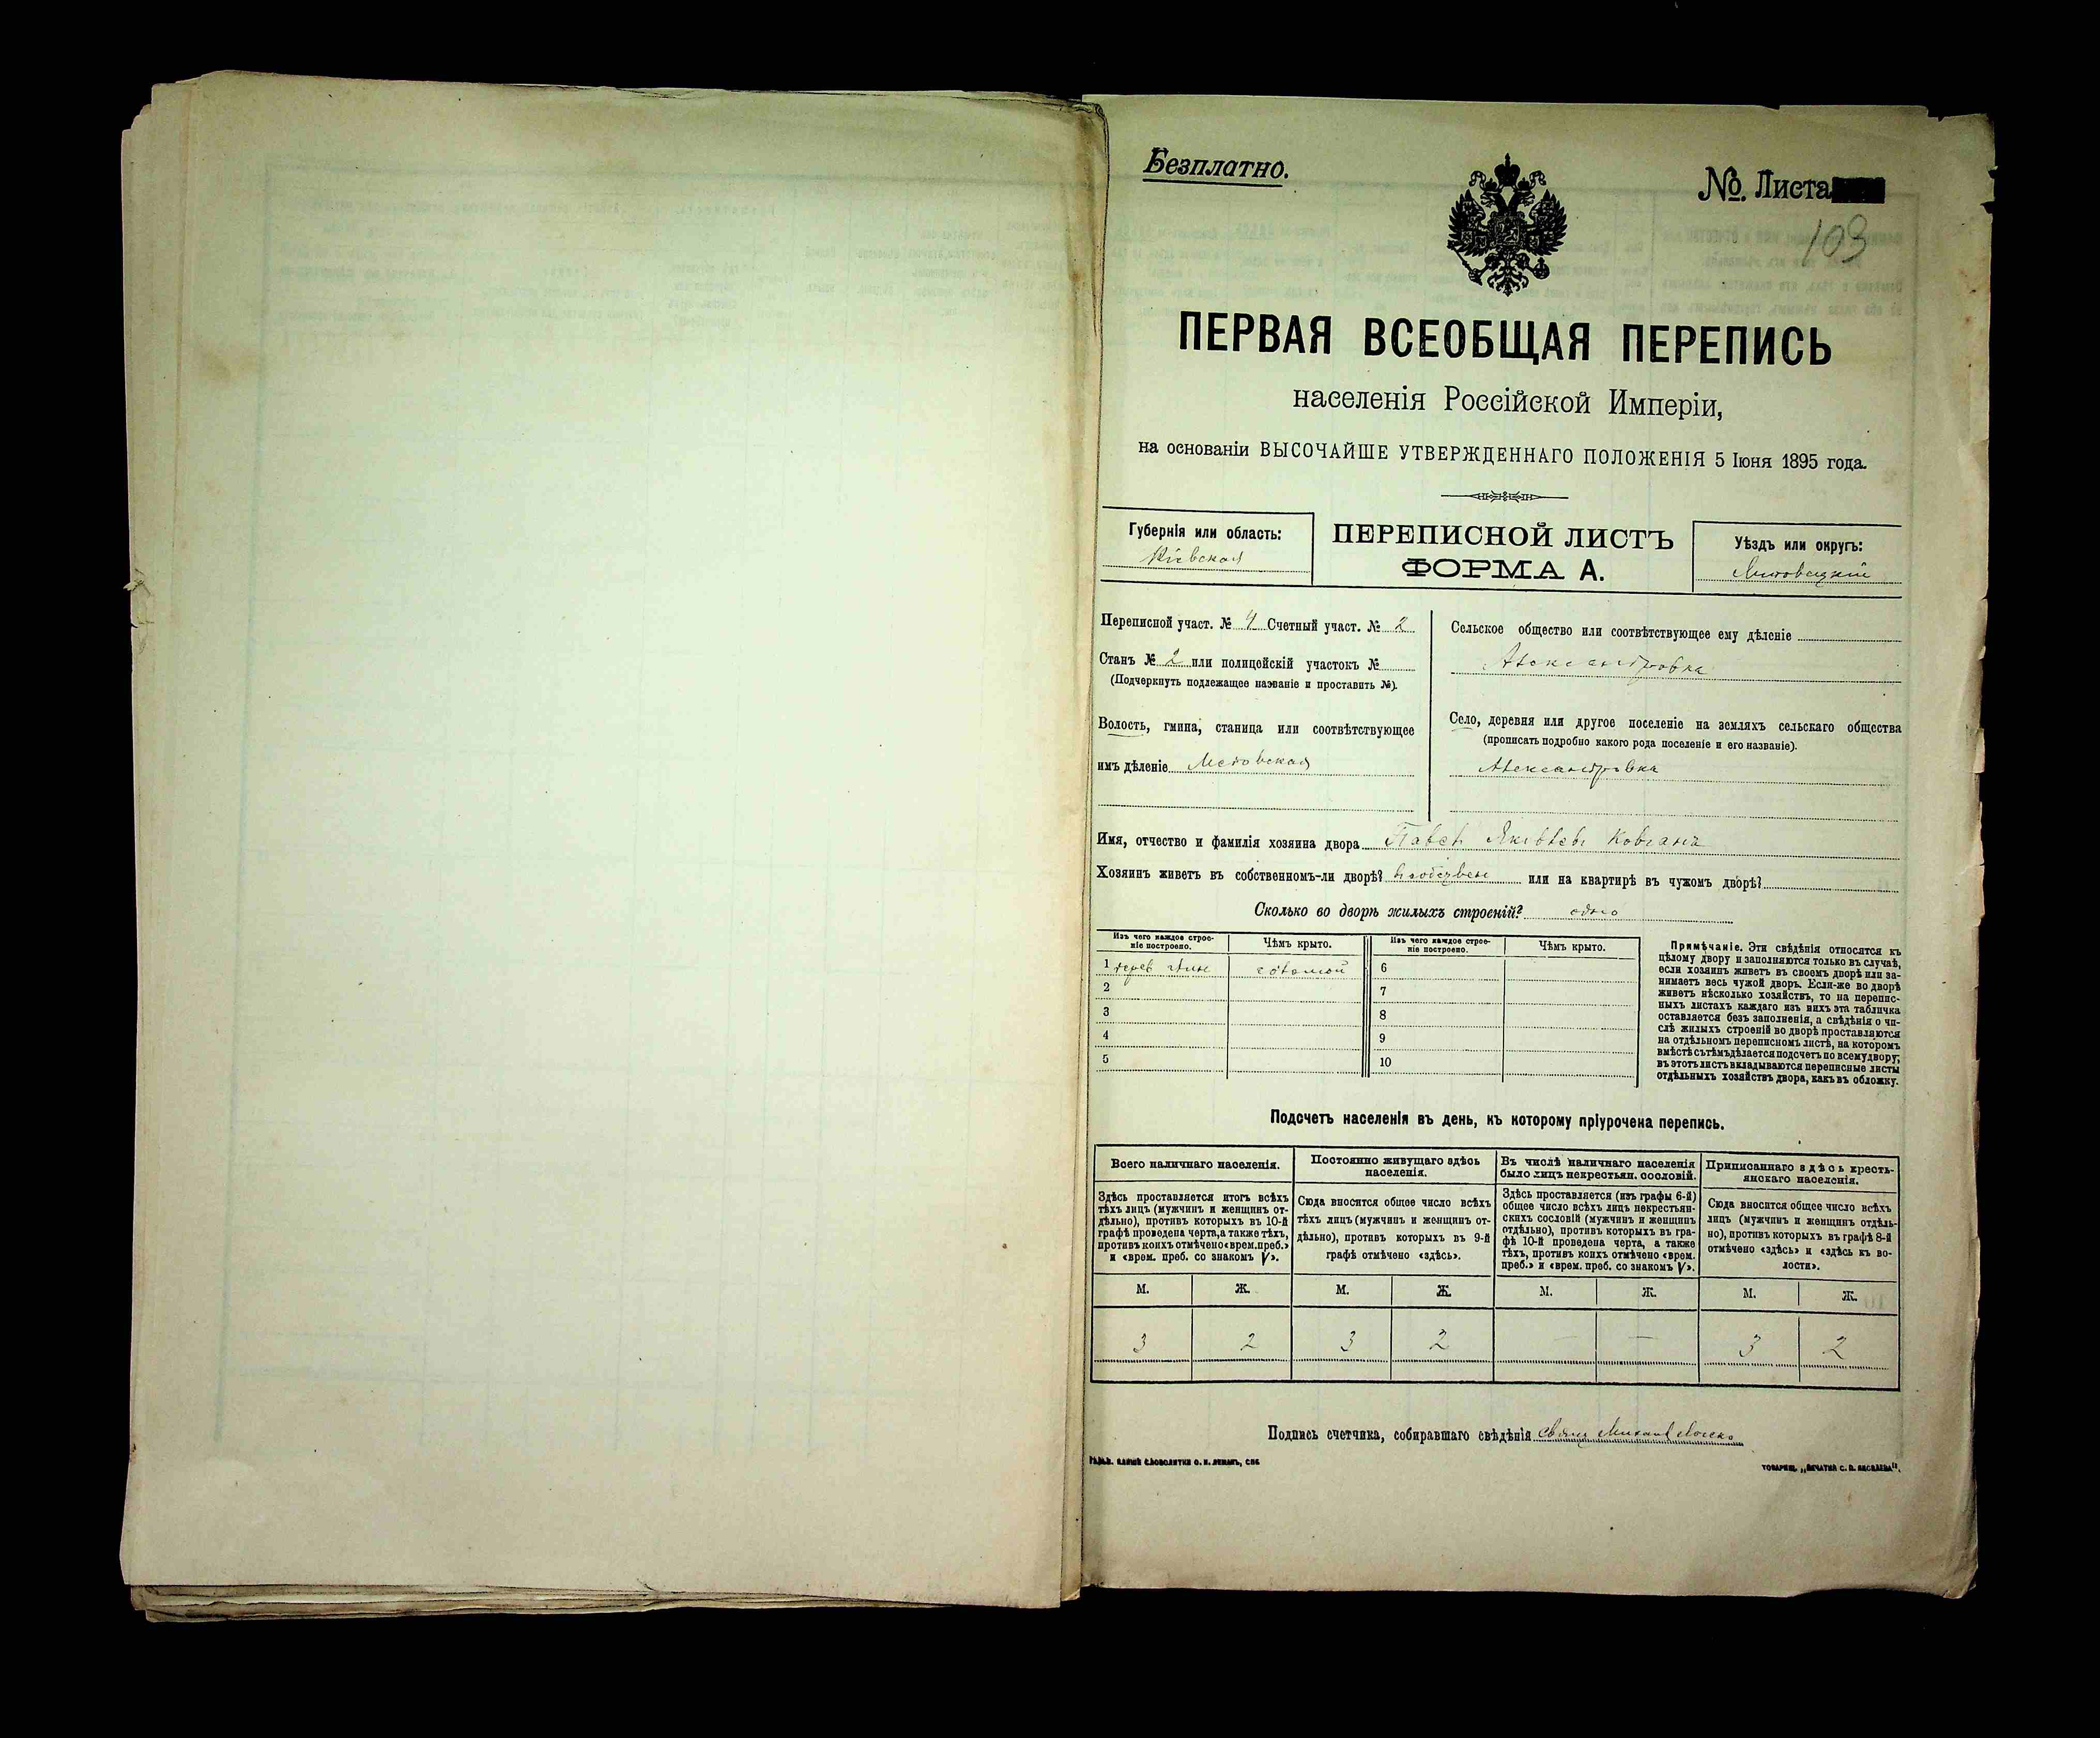 Безплатно.
№. Листа
103
ПЕРВАЯ ВСЕОБЩАЯ ПЕРЕПИСЬ
населенія Россійской Имперіи,
на основаніи ВЫСОЧАЙШЕ УТВЕРЖДЕННАГО ПОЛОЖЕНІЯ 5 Іюня 1895 года.
Губернія или область:
Кіевская
ПЕРЕПИСНОЙ ЛИСТЪ
ФОРМА А.
Уѣздъ или округъ:
Липовецкій
Переписной участ. № 4 Счетный участ. № 2
Станъ № 2 или полицейскій участокъ №
(Подчеркнуть подлежащее названіе и проставить №).
Волость, гмина, станица или соотвѣтствующее
имъ дѣленіе
Сельское общество или соотвѣтствующее ему дѣленіе
Александровка
Село, деревня или другое поселеніе на земляхъ сельскаго общества
(прописать подробно какого рода поселеніе и его названіе).
Александровка
Имя, отчество и фамилія хозяина двора Павелъ Яковлевъ
Хозяинъ живетъ въ собственномъ-ли дворѣ? или на квартирѣ въ чужомъ дворѣ?
Сколько во дворѣ жилыхъ строеній? одно
Изъ чего каждое строе-
ніе построено.
Чѣмъ крыто.
Изъ чего каждое строе-
ніе построено.
Чѣмъ крыто.
1 соломой 6
2 7
3 8
4 9
5 10
Примѣчаніе. Эти свѣдѣнія относятся къ
цѣлому двору и заполняются только въ случаѣ,
если хозяинъ живетъ въ своемъ дворѣ или за-
нимаетъ весь чужой дворъ. Если-же во дворѣ
живетъ нѣсколько хозяйствъ, то на перепис-
ныхъ листахъ каждаго изъ нихъ эта табличка
оставляется безъ заполненія, а свѣдѣнія о чи-
слѣ жилыхъ строеній во дворѣ проставляются
на отдѣльномъ переписномъ листѣ, на которомъ
вмѣстѣ съ тѣмъ дѣлается подсчетъ по всему двору;
въ этотъ листъ вкладываются переписные листы
отдѣльныхъ хозяйствъ двора, какъ въ обложку.
Подсчетъ населенія въ день, къ которому пріурочена перепись.
Всего наличнаго населенія.
Здѣсь проставляется итогъ всѣхъ
тѣхъ лицъ (мужчинъ и женщинъ от-
дѣльно), противъ которыхъ въ 10-й
графѣ проведена черта, а также тѣхъ,
противъ коихъ отмѣчено «врем. преб.»
и «врем. преб. со знакомъ V».
Постоянно живущаго здѣсь
населенія.
Сюда вносится общее число всѣхъ
тѣхъ лицъ (мужчинъ и женщинъ от-
дѣльно), противъ которыхъ въ 9-й
графѣ отмѣчено «здѣсь».
Въ числѣ наличнаго населенія
было лицъ некрестьян. сословій.
Здѣсь проставляется (изъ графы 6-й)
общее число всѣхъ лицъ некрестьян-
скихъ сословій (мужчинъ и женщинъ
отдѣльно), противъ которыхъ въ гра-
фѣ 10-й проведена черта, а также
тѣхъ, противъ коихъ отмѣчено «врем.
преб.» и «врем. преб. со знакомъ V».
Приписаннаго здѣсь кресть-
янскаго населенія.
Сюда вносится общее число всѣхъ
лицъ (мужчинъ и женщинъ отдѣль-
но), противъ которыхъ въ графѣ 8-й
отмѣчено «здѣсь» и «здѣсь къ во-
лости».
М. Ж. М. Ж. М. Ж. М. Ж.
3 2 3 2 — — 3 2
Подпись счетчика, собиравшаго свѣдѣнія